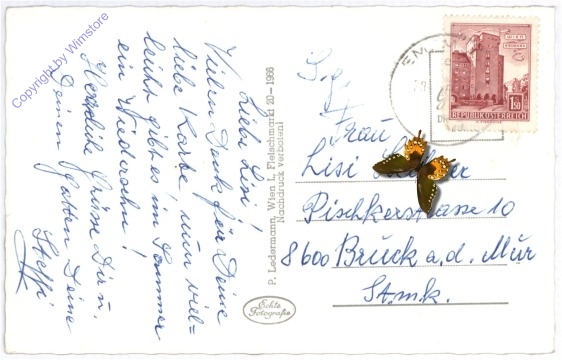 Copyright by Wimstore
Liebe Lisi!
Vielen Dank für Deine
liebe Karte, nun viel=
leicht gibt es im Sommer
ein Wiedersehn!
Herzliche Grüsse Dir u.
Deinem Gatten Deine
Steffi
P. Ledermann, Wien I., Fleischmarkt 20 - 1966
Nachdruck verboten!
Echte
Fotografie
WIEN
1.50
REPUBLIK ÖSTERREICH
Frau
Lisi
Pischkerstrasse 10
8600 Bruck a.d. Mur
Stmk.